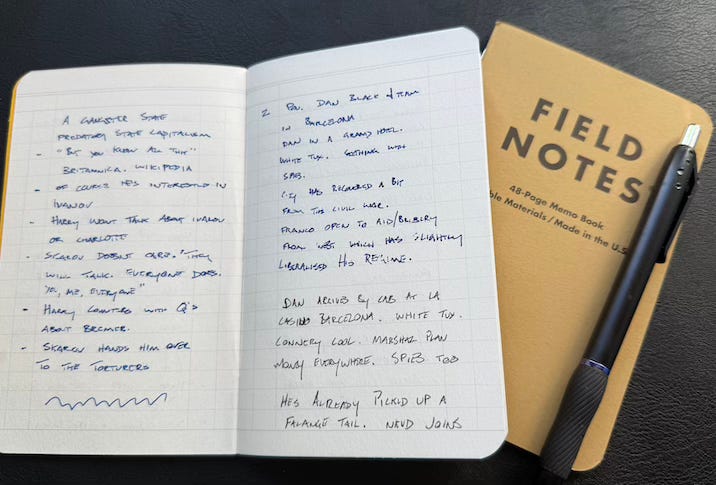 A GANGSTER STATE
PREDATORY STATE CAPITALISM
- "BUT YOU KNOW ALL THIS"
BRITANNICA. WIKIPEDIA
- OF COURSE HE'S INTERESTED IN
IVANOV
- HARRY WON'T TALK ABOUT IVANOV
OR CHARLOTTE
- SKAROV DOESN'T CARE. "THEY
WILL TALK. EVERYONE DOES.
YOU, ME, EVERYONE"
- HARRY COUNTERS WITH Q'S
ABOUT BREMER.
- SKAROV HANDS HIM OVER
TO THE TORTURERS
2 DAN BLACK & TEAM
IN BARCELONA
DAN IN A GRAND HOTEL.
WHITE TUX. SEETHING WITH
SPIES.
CITY HAS RECOVERED A BIT
FROM THE CIVIL WAR.
FRANCO OPEN TO AID/BRIBERY
FROM WEST WHICH HAS SLIGHTLY
LIBERALISED HIS REGIME.
DAN ARRIVES BY CAB AT LA
CASINO BARCELONA. WHITE TUX.
CONNERY COOL. MARSHAL PLAN
MONEY EVERYWHERE. SPIES TOO
HES ALREADY PICKED UP A
FALANGE TAIL. JOINS
FIELD
NOTES
48-Page Memo Book
ble Materials / Made in the U.S.